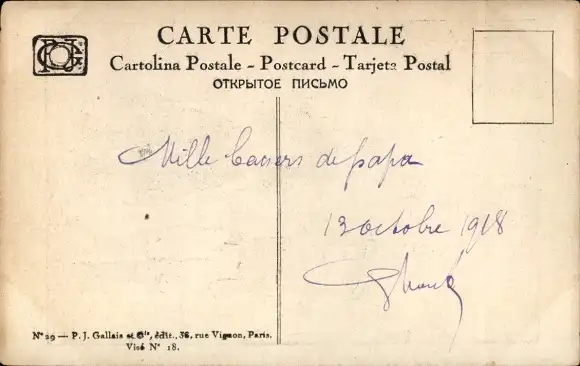 CARTE POSTALE
Cartolina Postale - Postcard - Tarjeta Postal
ОТКРЫТОЕ ПИСЬМО
Mille baisers de papa
13 octobre 1918
Nº 29 — P. J. Gallais et Cie, édit., 38, rue Vignon, Paris.
Visé Nº 18.